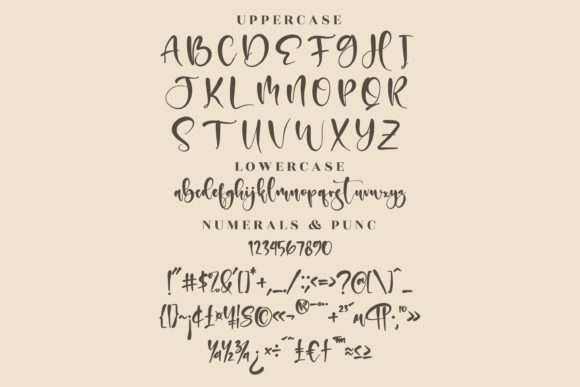 UPPERCASE
ABCDEFGHI
JKLMNOPQR
STUVWXYZ
LOWERCASE
abcdefghijklmnopqrstuvwxyz
NUMERALS & PUNC
1234567890
!"#$%&'()*+,-./:;<=>?@[\]^_
{|}~¡¢£¤¥¦§©«¬®¯°±²³´µ¶·¸¹º»
¼½¾¿×÷ˆ˜₤€†™≈≤≥